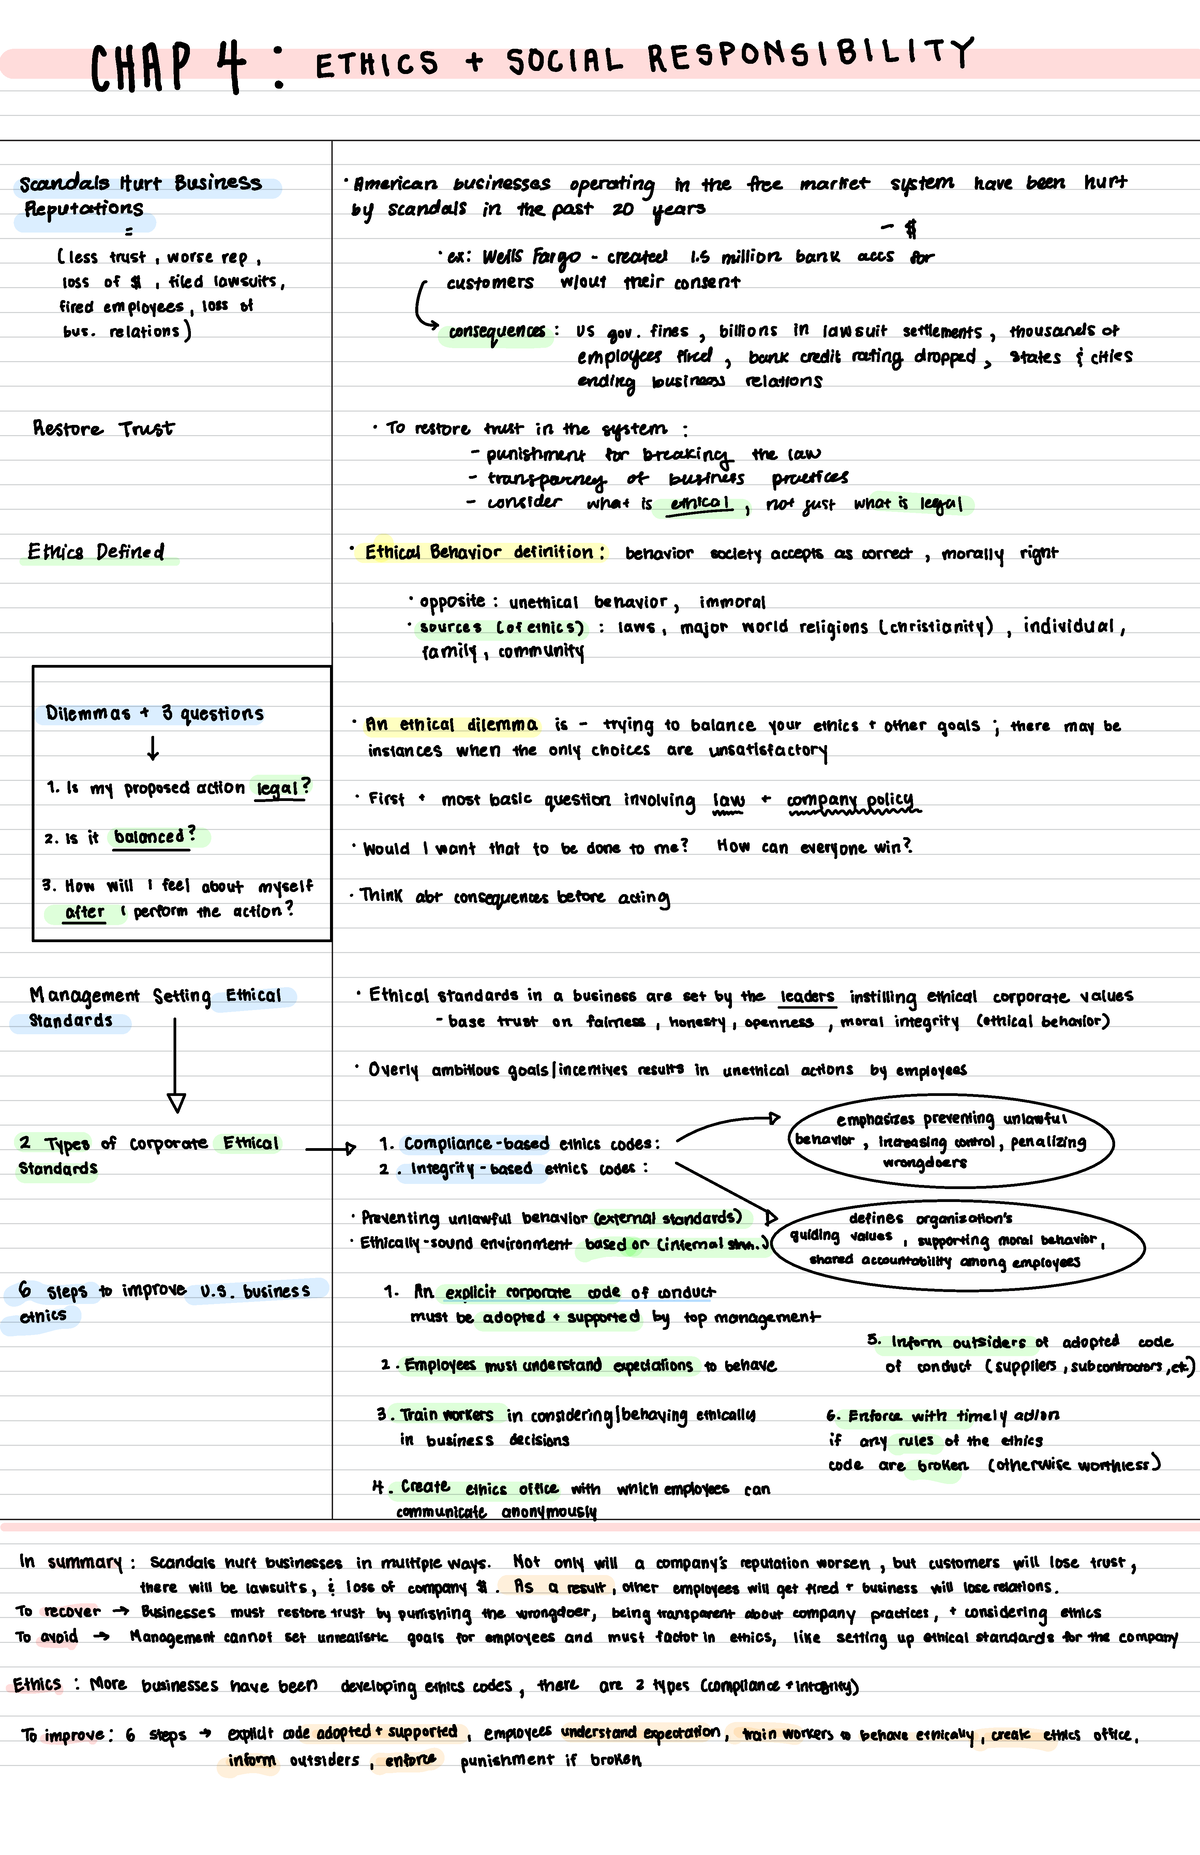 CHAP 4 : ETHICS + SOCIAL RESPONSIBILITY
Scandals Hurt Business
Reputations
=
(less trust, worse rep,
loss of $, filed lawsuits,
fired employees, loss of
bus. relations)
· American businesses operating in the free market system have been hurt
by scandals in the past 20 years
- $
· ex: Wells Fargo - created 1.5 million bank accs for
customers w/out their consent
consequences : US gov. fines, billions in lawsuit settlements, thousands of
employees fired, bank credit rating dropped, states & cities
ending business relations
Restore Trust
· To restore trust in the system :
- punishment for breaking the law
- transparney of business practices
- consider what is ethical, not just what is legal
Ethics Defined
· Ethical Behavior definition: behavior society accepts as correct, morally right
· opposite : unethical behavior, immoral
· sources (of ethics) : laws, major world religions (christianity), individual,
family, community
Dilemmas + 3 questions
1. Is my proposed action legal?
2. Is it balanced?
3. How will I feel about myself
after I perform the action?
· An ethical dilemma is - trying to balance your ethics + other goals ; there may be
instances when the only choices are unsatisfactory
· First + most basic question involving law + company policy
· Would I want that to be done to me? How can everyone win?
· Think abt consequences before acting
Management Setting Ethical
Standards
· Ethical standards in a business are set by the leaders instilling ethical corporate values
- base trust on fairness, honesty, openness, moral integrity (ethical behavior)
· Overly ambitious goals/incentives results in unethical actions by employees
2 Types of Corporate Ethical
Standards
1. Compliance-based ethics codes:
2. Integrity-based ethics codes :
emphasizes preventing unlawful
behavior, increasing control, penalizing
wrongdoers
· Preventing unlawful behavior (external standards)
· Ethically-sound environment based on (internal stnn.)
defines organization's
guiding values, supporting moral behavior,
shared accountability among employees
6 steps to improve U.S. business
ethics
1. An explicit corporate code of conduct
must be adopted + supported by top management
2. Employees must understand expectations to behave
3. Train workers in considering/behaving ethically
in business decisions
4. Create ethics office with which employees can
communicate anonymously
5. Inform outsiders of adopted code
of conduct (suppliers, subcontractors, etc)
6. Enforce with timely action
if any rules of the ethics
code are broken (otherwise worthless)
In summary : Scandals hurt businesses in multiple ways. Not only will a company's reputation worsen, but customers will lose trust,
there will be lawsuits, & loss of company $. As a result, other employees will get fired + business will lose relations.
To recover → Businesses must restore trust by punishing the wrongdoer, being transparent about company practices, + considering ethics
To avoid → Management cannot set unrealistic goals for employees and must factor in ethics, like setting up ethical standards for the company
Ethics : More businesses have been developing ethics codes, there are 2 types (compliance + integrity)
To improve: 6 steps → explicit code adopted + supported, employees understand expectation, train workers to behave ethically, create ethics office,
inform outsiders, enforce punishment if broken